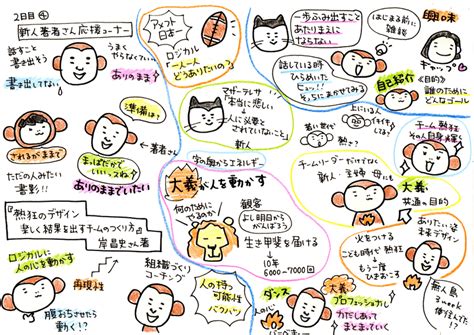 2日目④
新人著者さん応援コーナー
話すこと
そう話そう
書き出してない
うまく
やらなくていい。
ありのまま
書き出してない
されるがままで
ただのみみたい
準備は?
まっぱだかで
いいね。
著者さん
ありのままでいたい
『熱狂のデザイン
楽しく結果を出すチームのつくり方』
岸昌史さん著
ロジカルに
人の心を動かす
再現性
腹おちさせたら
動く!?
組織づくり
コーチング
アメフト
日本一
ロジカル
「一人一人
どうありたいの?」
マザーテレサ
「本当に悲しい
人に必要と
されていないこと」
新人
字の周からエネルギー
大義が人を動かす
何のために
やるのか
観客
よし明日から
がんばろう
生き甲斐を届ける
10年
6000〜7000回
人の持つ
可能性
バクハツ
ダンス
一歩ふみ出すこと
あたりまえに
ならない
話している時
ひらめいた
ヒュッ!!
そっちにまかせてみる
はじまる前に
雑談
興味
ギャップ
自己紹介
《目的》
誰のために
どんなゴール
上にいる人
若い世代
熱さ?
チーム熱狂
その人自身輝く
チームリーダーだけでなく
新人・主婦も
大義
共通の目的
火をつける
こども時代 熱狂
もう一度
ひきおこす
ありたい姿
大義
プロフェッショナル
力だしあって
まじめていく